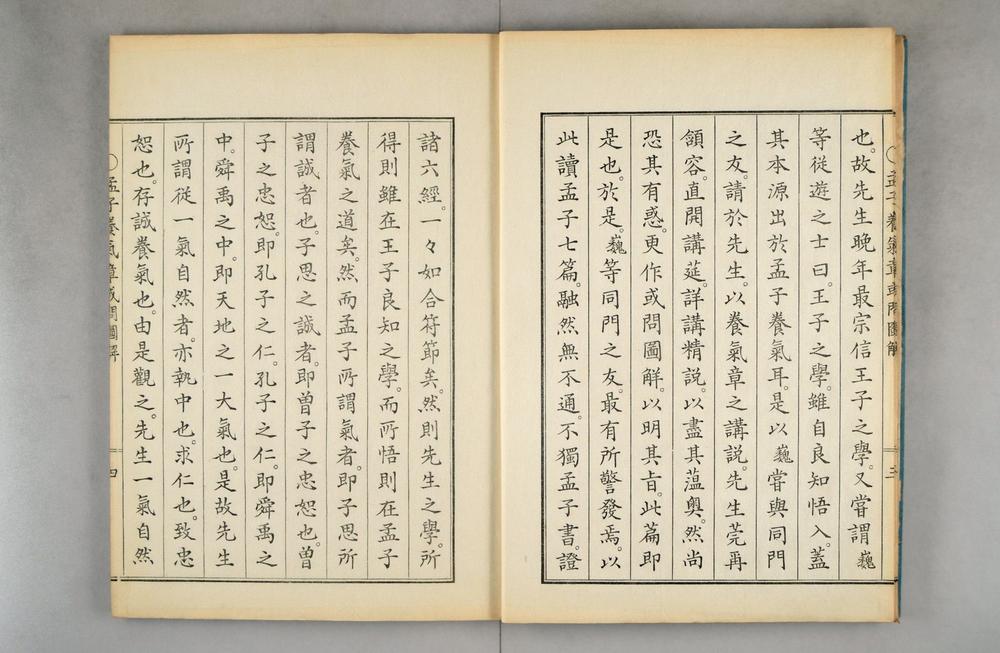 孟子養氣章或問圖解
三
也。故先生晚年最宗信王子之學。又嘗謂巍
等從遊之士曰。王子之學。雖自良知悟入。蓋
其本源出於孟子養氣耳。是以巍嘗與同門
之友。請於先生。以養氣章之講說。先生莞再
頷容。直開講莚。詳講精說。以盡其薀奧。然尚
恐其有惑。更作或問圖解。以明其旨。此篇即
是也。於是。巍等同門之友。最有所警發焉。以
此讀孟子七篇。融然無不通。不獨孟子書。證
諸六經。一々如合符節矣。然則先生之學。所
得則雖在王子良知之學。而所悟則在孟子
養氣之道矣。然而孟子所謂氣者。即子思所
謂誠者也。子思之誠者。即曾子之忠恕也。曾
子之忠恕。即孔子之仁。孔子之仁。即舜禹之
中。舜禹之中。即天地之一大氣也。是故先生
所謂從一氣自然者。亦執中也。求仁也。致忠
恕也。存誠養氣也。由是觀之。先生一氣自然
孟子養氣章或問圖解
四